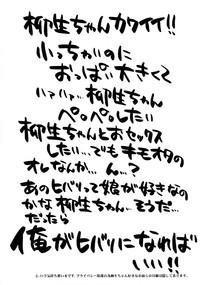 柳生ちゃんカワイイ!!
小っちゃいのに
おっぱい大きくて
ハァハァ…柳生ちゃん
ペロペロしたい
柳生ちゃんとおセックス
したい…でもキモオタの
オレなんか…ん…?
あのヒバリって娘が好きなの
かな柳生ちゃん…そうだ…
だったら
俺がヒバリになれば
いい!!